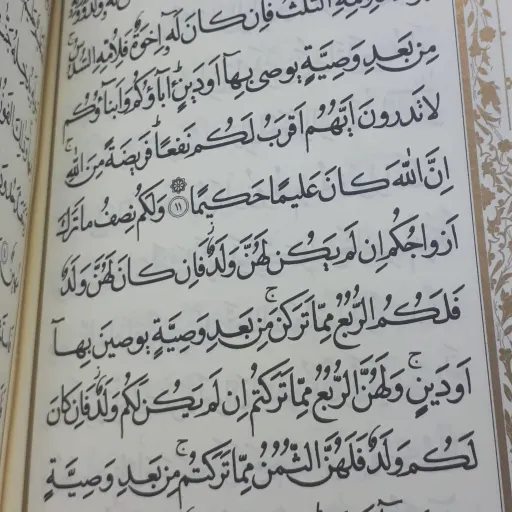 فَلِاُمِّهِ الثُّلُثُ فَاِنْ كَانَ لَهُ اِخْوَةٌ فَلِاُمِّهِ السُّدُسُ
مِنْ بَعْدِ وَصِيَّةٍ يُوصِى بِهَآ اَوْ دَيْنٍ اٰبَآؤُكُمْ وَاَبْنَاؤُكُمْ
لَا تَدْرُونَ اَيُّهُمْ اَقْرَبُ لَكُمْ نَفْعًا فَرِيضَةً مِنَ اللّٰهِ
اِنَّ اللّٰهَ كَانَ عَلِيمًا حَكِيمًا ١١ وَلَكُمْ نِصْفُ مَا تَرَكَ
اَزْوَاجُكُمْ اِنْ لَمْ يَكُنْ لَهُنَّ وَلَدٌ فَاِنْ كَانَ لَهُنَّ وَلَدٌ
فَلَكُمُ الرُّبُعُ مِمَّا تَرَكْنَ مِنْ بَعْدِ وَصِيَّةٍ يُوصِينَ بِهَآ
اَوْ دَيْنٍ وَلَهُنَّ الرُّبُعُ مِمَّا تَرَكْتُمْ اِنْ لَمْ يَكُنْ لَكُمْ وَلَدٌ فَاِنْ كَانَ
لَكُمْ وَلَدٌ فَلَهُنَّ الثُّمُنُ مِمَّا تَرَكْتُمْ مِنْ بَعْدِ وَصِيَّةٍ